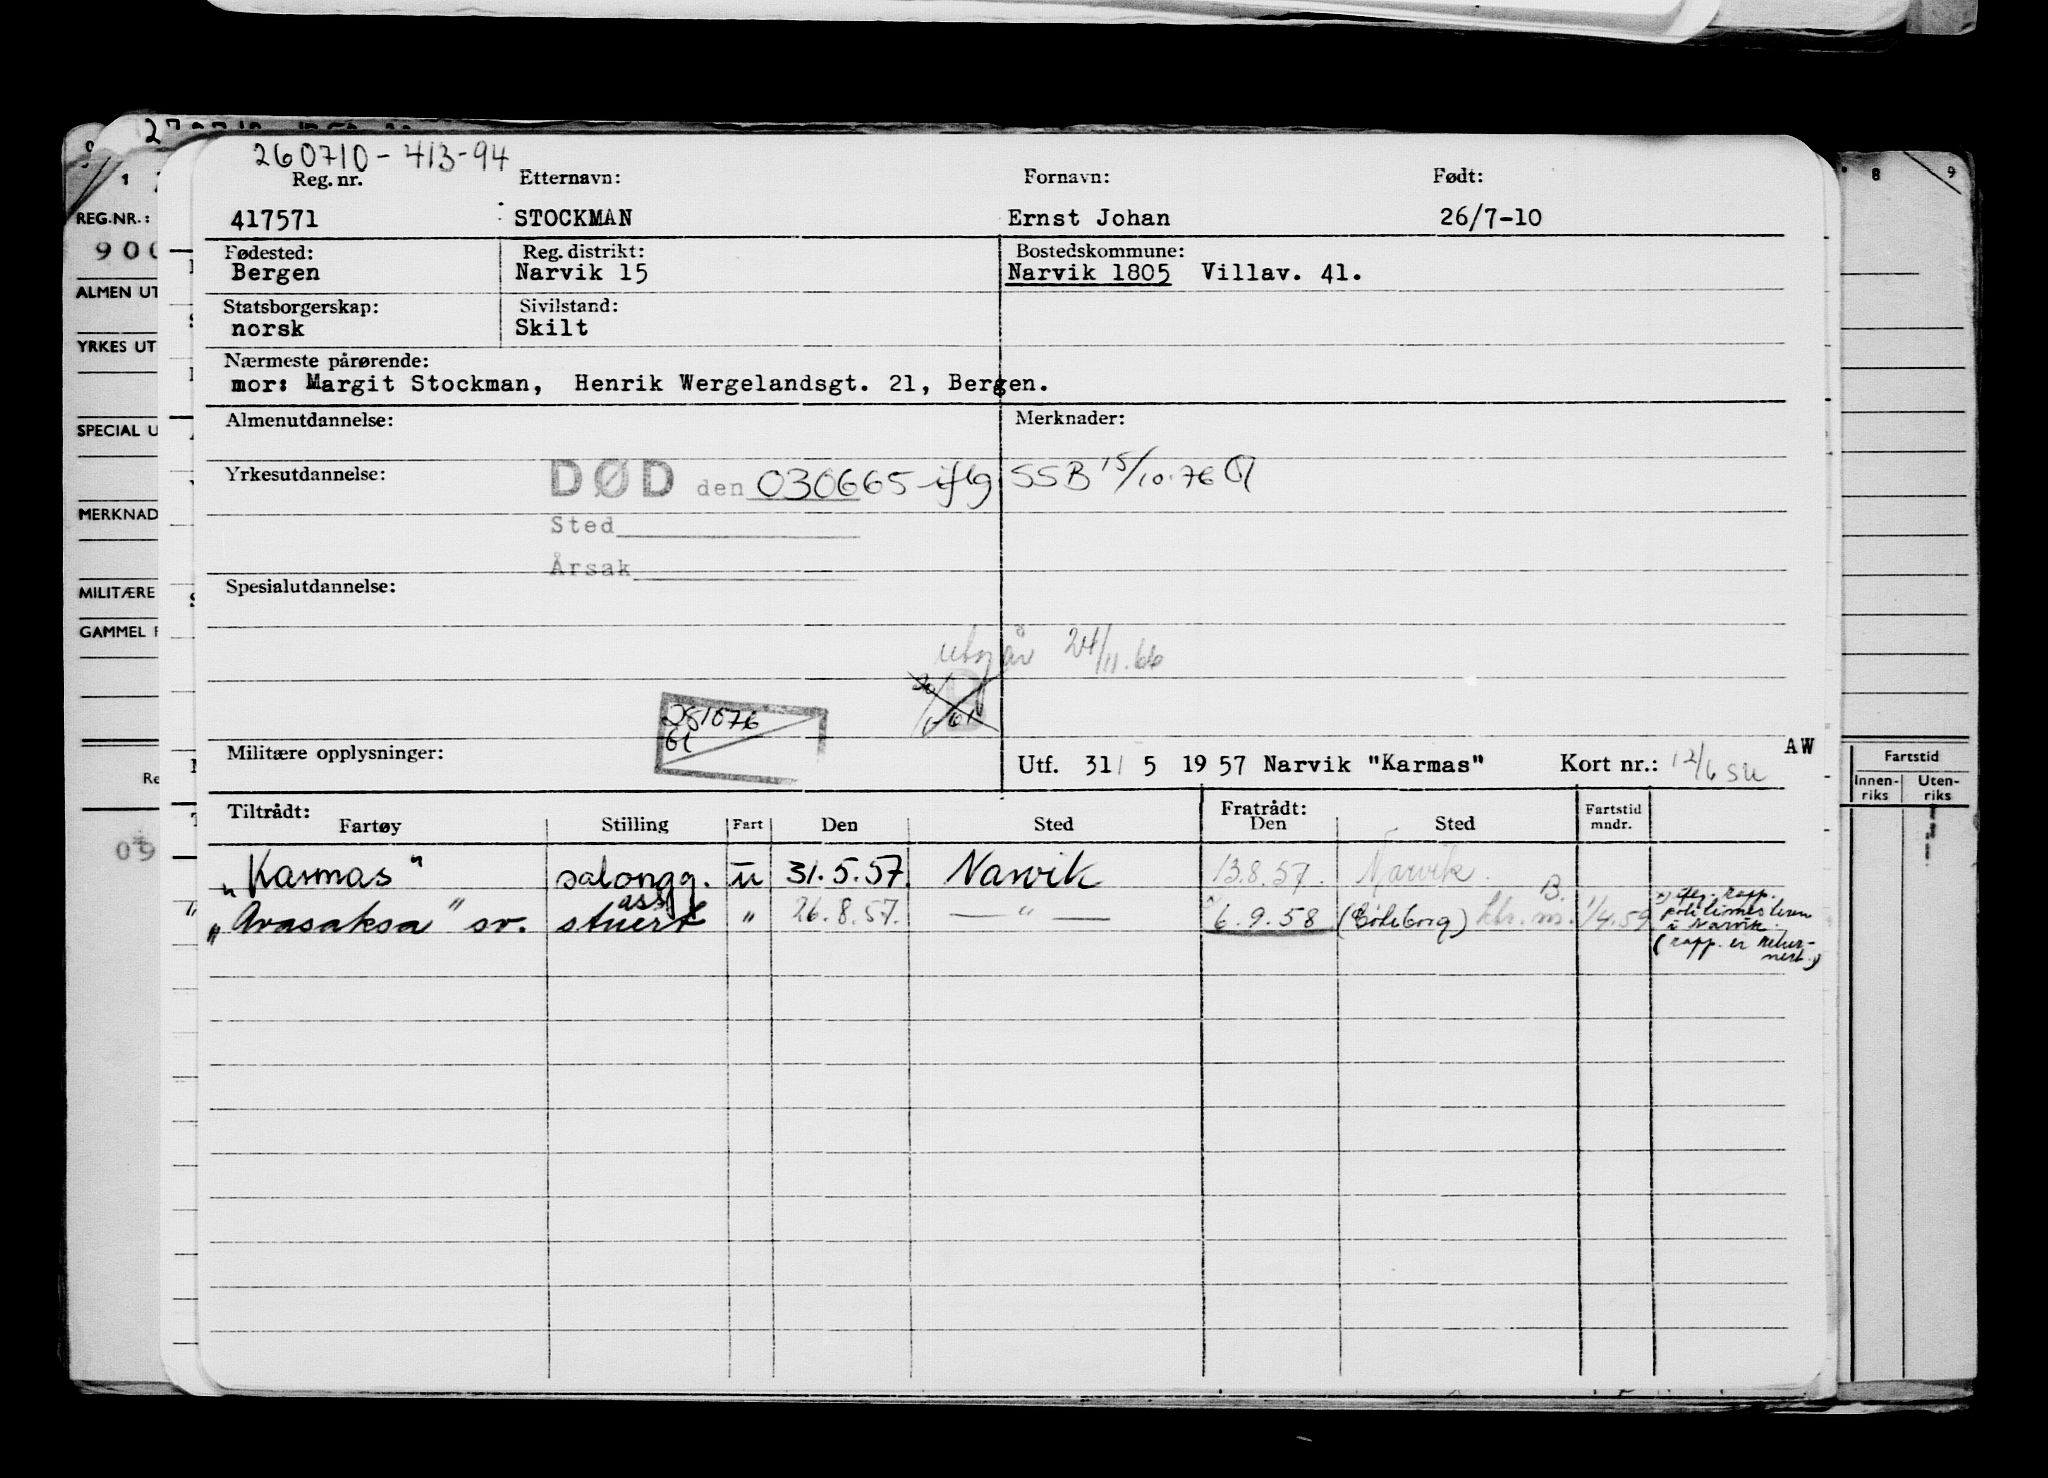 260710-413-94
Reg. nr. Etternavn: Fornavn: Født:
417571 STOCKMAN Ernst Johan 26/7-10
Fødested: Reg. distrikt: Bostedskommune:
Bergen Narvik 15 Narvik 1805 Villav. 41.
Statsborgerskap: Sivilstand:
norsk Skilt
Nærmeste pårørende:
mor: Margit Stockman, Henrik Wergelandsgt. 21, Bergen.
Almenutdannelse: Merknader:
Yrkesutdannelse: DØD den 030665 iflg SSB 15/10.76
Sted
Årsak
Spesialutdannelse:
utgår 24/11.66
281076
Militære opplysninger: Utf. 31/ 5 1957 Narvik "Karmas" Kort nr.: 12/6 su
AW
Tiltrådt: Fratrådt: Fartstid
Fartøy Stilling Fart Den Sted Den Sted mndr.
"Karmas" salongg. u 31.5.57. Narvik 13.8.57. Narvik.
"Avasaksa" sv. ass stuert " 26.8.57. — " — 6.9.58 (Göteborg) B. 1/4.59
x) iflg. rapp.
politimesteren
i Narvik.
(rapp. er retur-
nert.)
REG.NR.:
900
ALMEN UT
YRKES UT
SPECIAL U
MERKNAD
MILITÆRE
GAMMEL F
Re
09
8 9
Fartstid
Innen-
riks
Uten-
riks